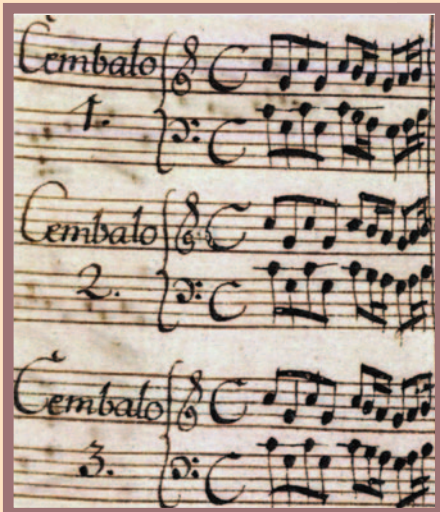 Cembalo
1.
Cembalo
2.
Cembalo
3.